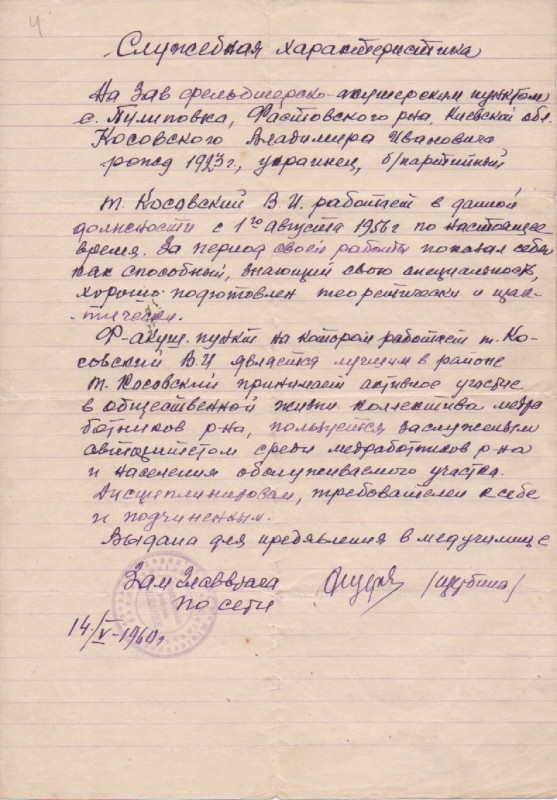 4
Служебная характеристика
На Зав фельдшерско-акушерским пунктом
с. Пилиповка, Фастовского р-на, Киевской обл.
Косовского Владимира Ивановича
рожд 1923 г., украинец, б/партийный
т. Косовский В. И. работает в данной
должности с 1го августа 1956 г по настоящее
время. За период своей работы показал себя
как способный, знающий свою специальность,
хорошо подготовлен теоретически и прак-
тически.
Ф-акуш. пункт на котором работает т. Ко-
совский В.И является лучшим в районе
т. Косовский принимает активное участие
в общественной жизни коллектива медра
ботников р-на, пользуется заслуженным
авторитетом среди медработников р-на
и населения обслуживаемого участка.
Дисциплинирован, требователен к себе
и подчиненным.
Выдана для предявления в медучилище
Зам Главврача
по сети
14/V-1960 г